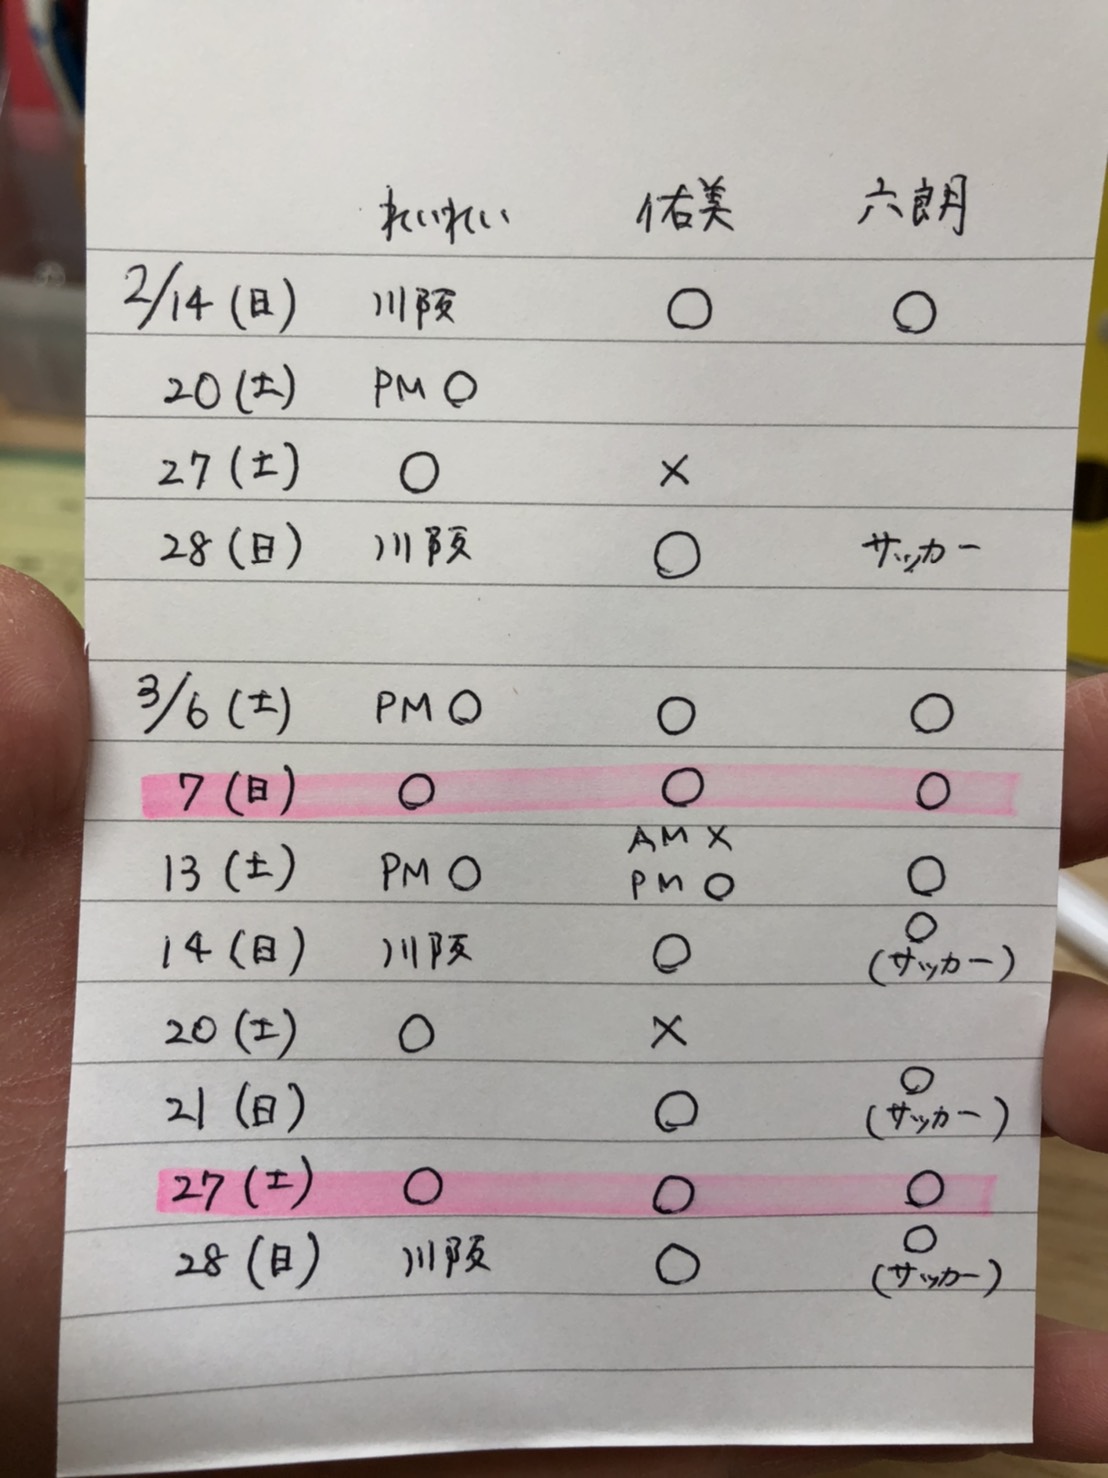 れいれい 佑美 六朗
2/14(日) 川阪 ○ ○
20(土) PM ○
27(土) ○ ×
28(日) 川阪 ○ サッカー
3/6(土) PM ○ ○ ○
7(日) ○ ○ ○
13(土) PM ○ AM × PM ○ ○
14(日) 川阪 ○ ○(サッカー)
20(土) ○ ×
21(日) ○ ○(サッカー)
27(土) ○ ○ ○
28(日) 川阪 ○ ○(サッカー)